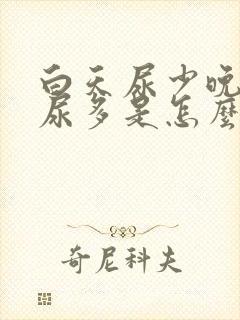 白天尿少晚
尿多是怎麼
奇尼科夫